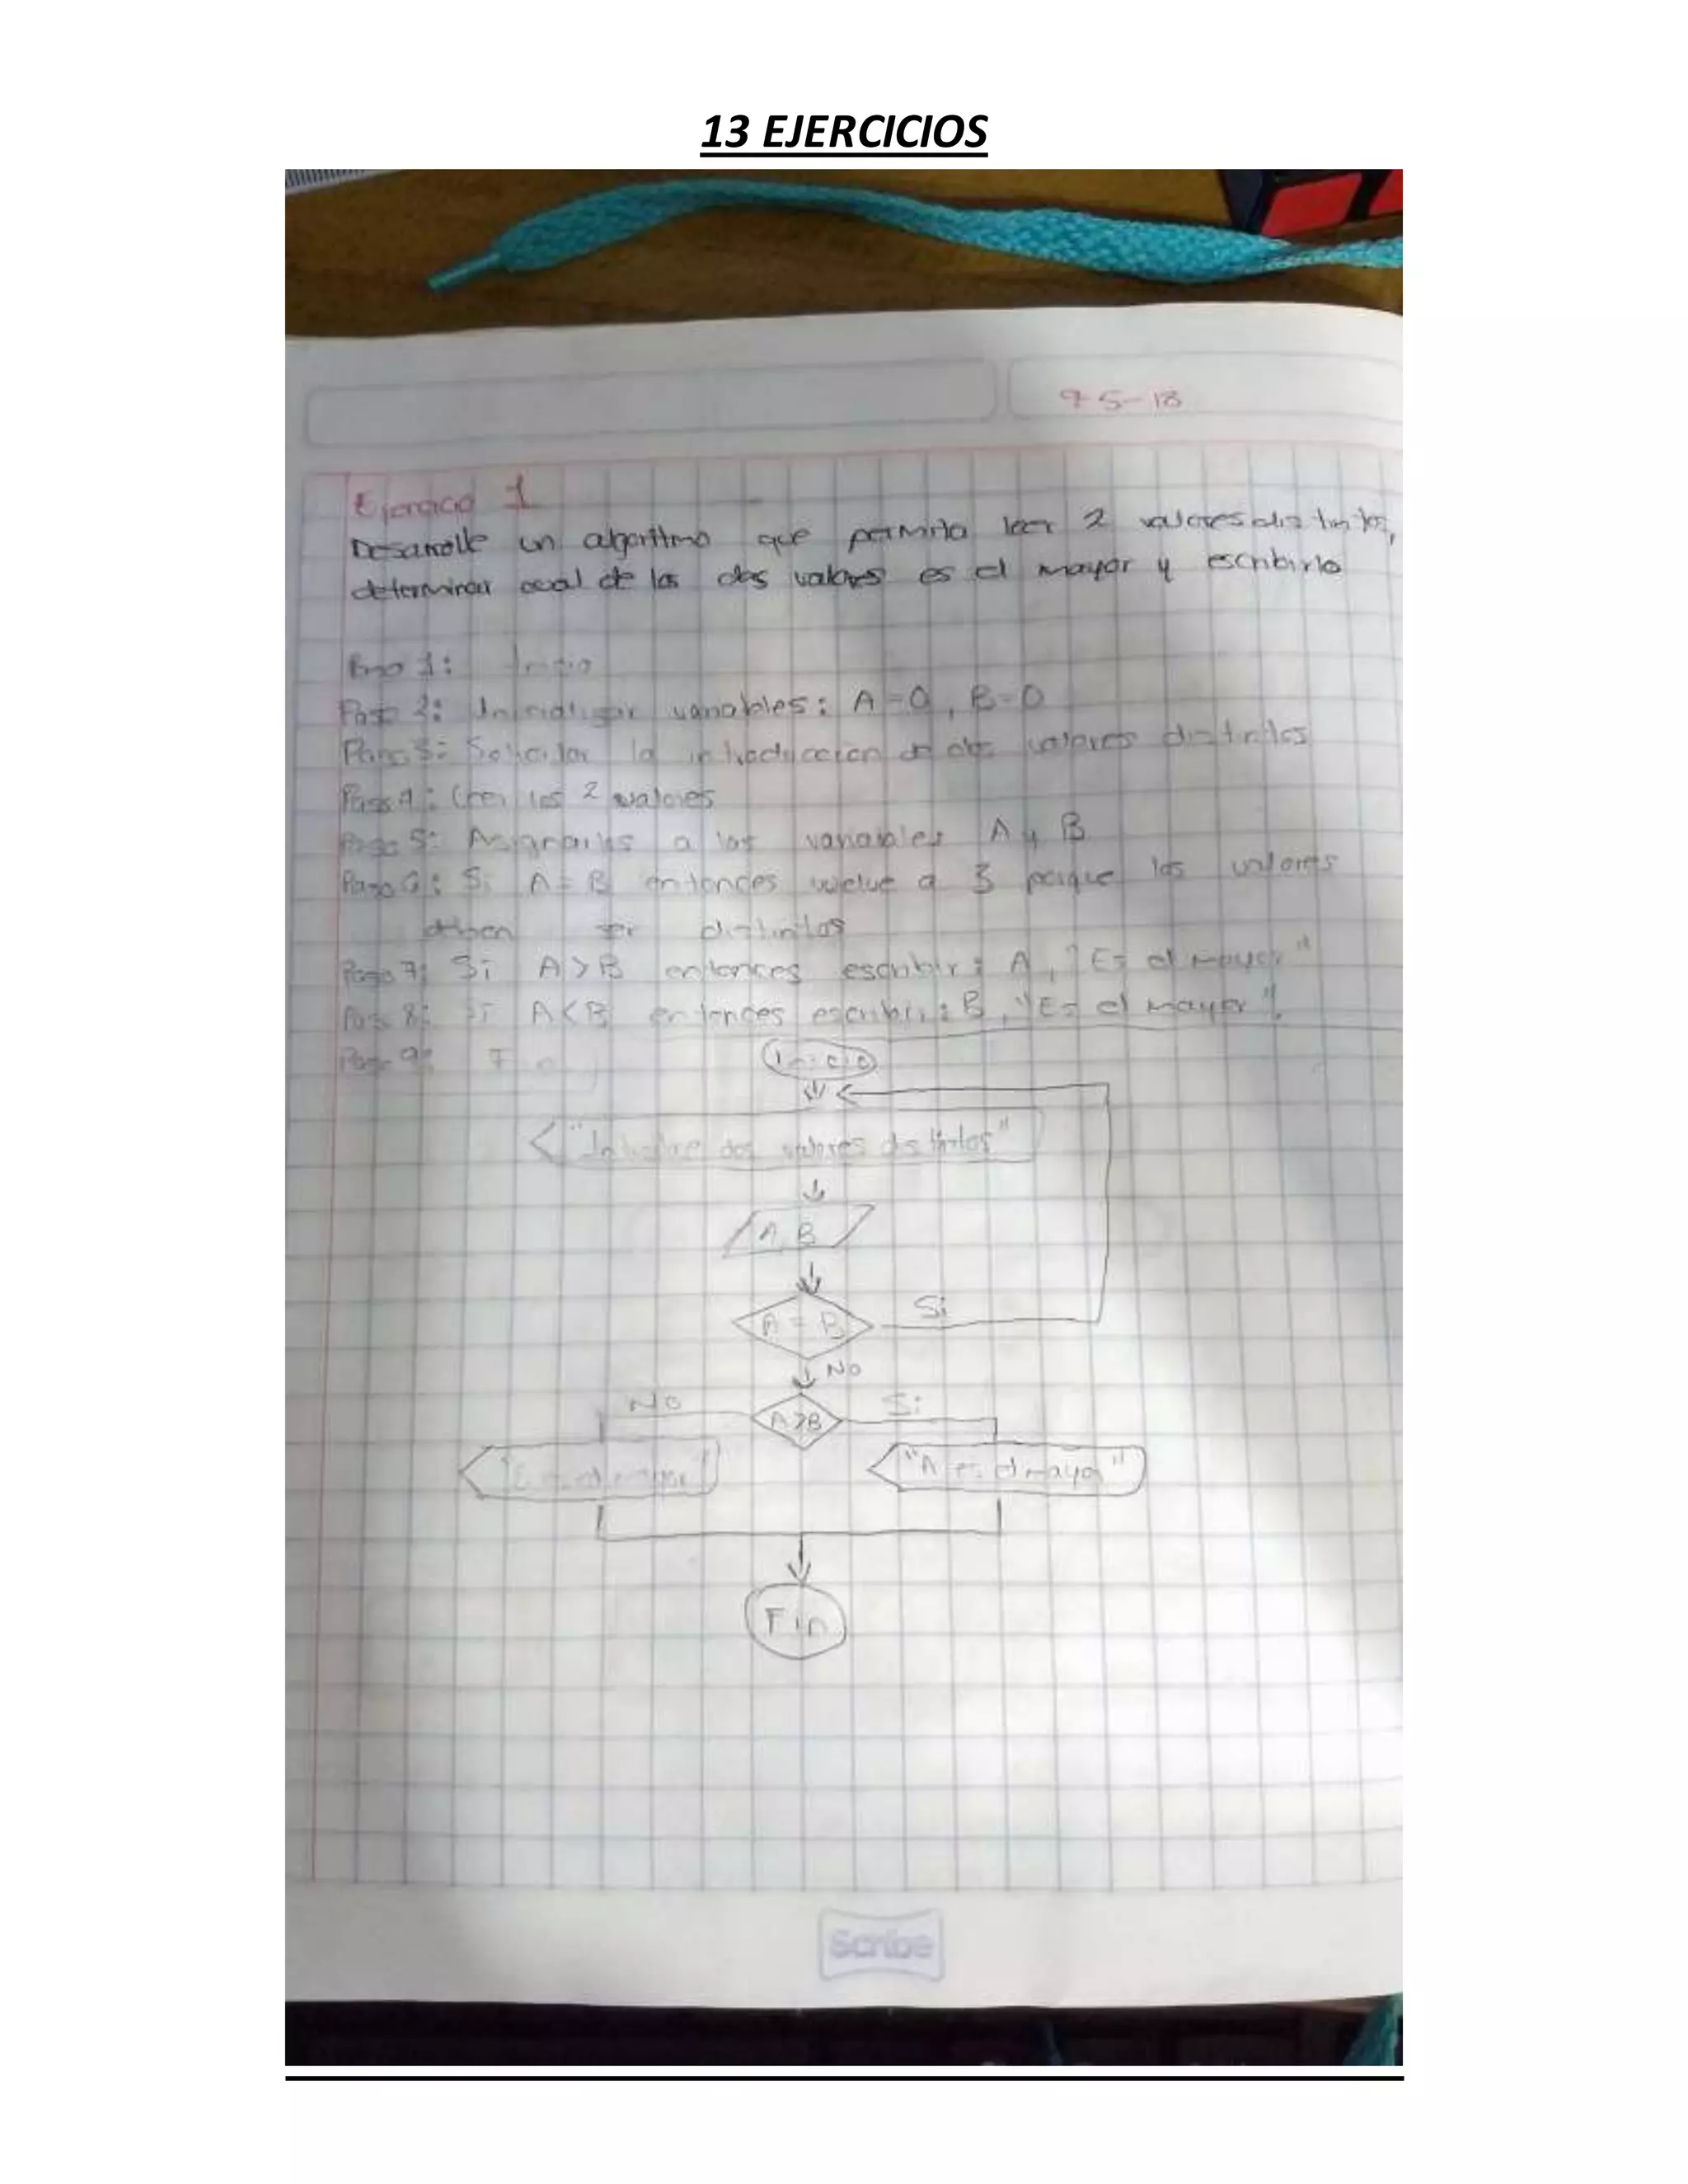 13 EJERCICIOS
9-5-18
Ejercicio 1
Desarrolle un algoritmo que permita leer 2 valores distintos,
determinar cual de los dos valores es el mayor y escribirlo
Paso 1: Inicio
Paso 2: Inicializar variables: A=0, B=0
Paso 3: Solicitar la introduccion de dos valores distintos
Paso 4: Leer los 2 valores
Paso 5: Asignarlos a las variables A y B
Paso 6: Si A=B entonces vuelve a 3 porque los valores
deben ser distintos
Paso 7: Si A>B entonces escribir: A, "Es el mayor"
Paso 8: Si A<B entonces escribir: B, "Es el mayor".
Paso 9: Fin
Inicio
"Introduce dos valores distintos"
A, B
A = B
Si
No
No
A>B
Si
es el mayor"
"A es el mayor"
Fin
Scribe